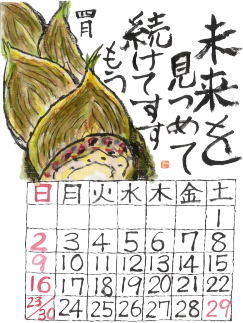 未来を
見つめて
続けてすす
もう
四月
日 月 火 水 木 金 土
1
2 3 4 5 6 7 8
9 10 11 12 13 14 15
16 17 18 19 20 21 22
23/30 24 25 26 27 28 29